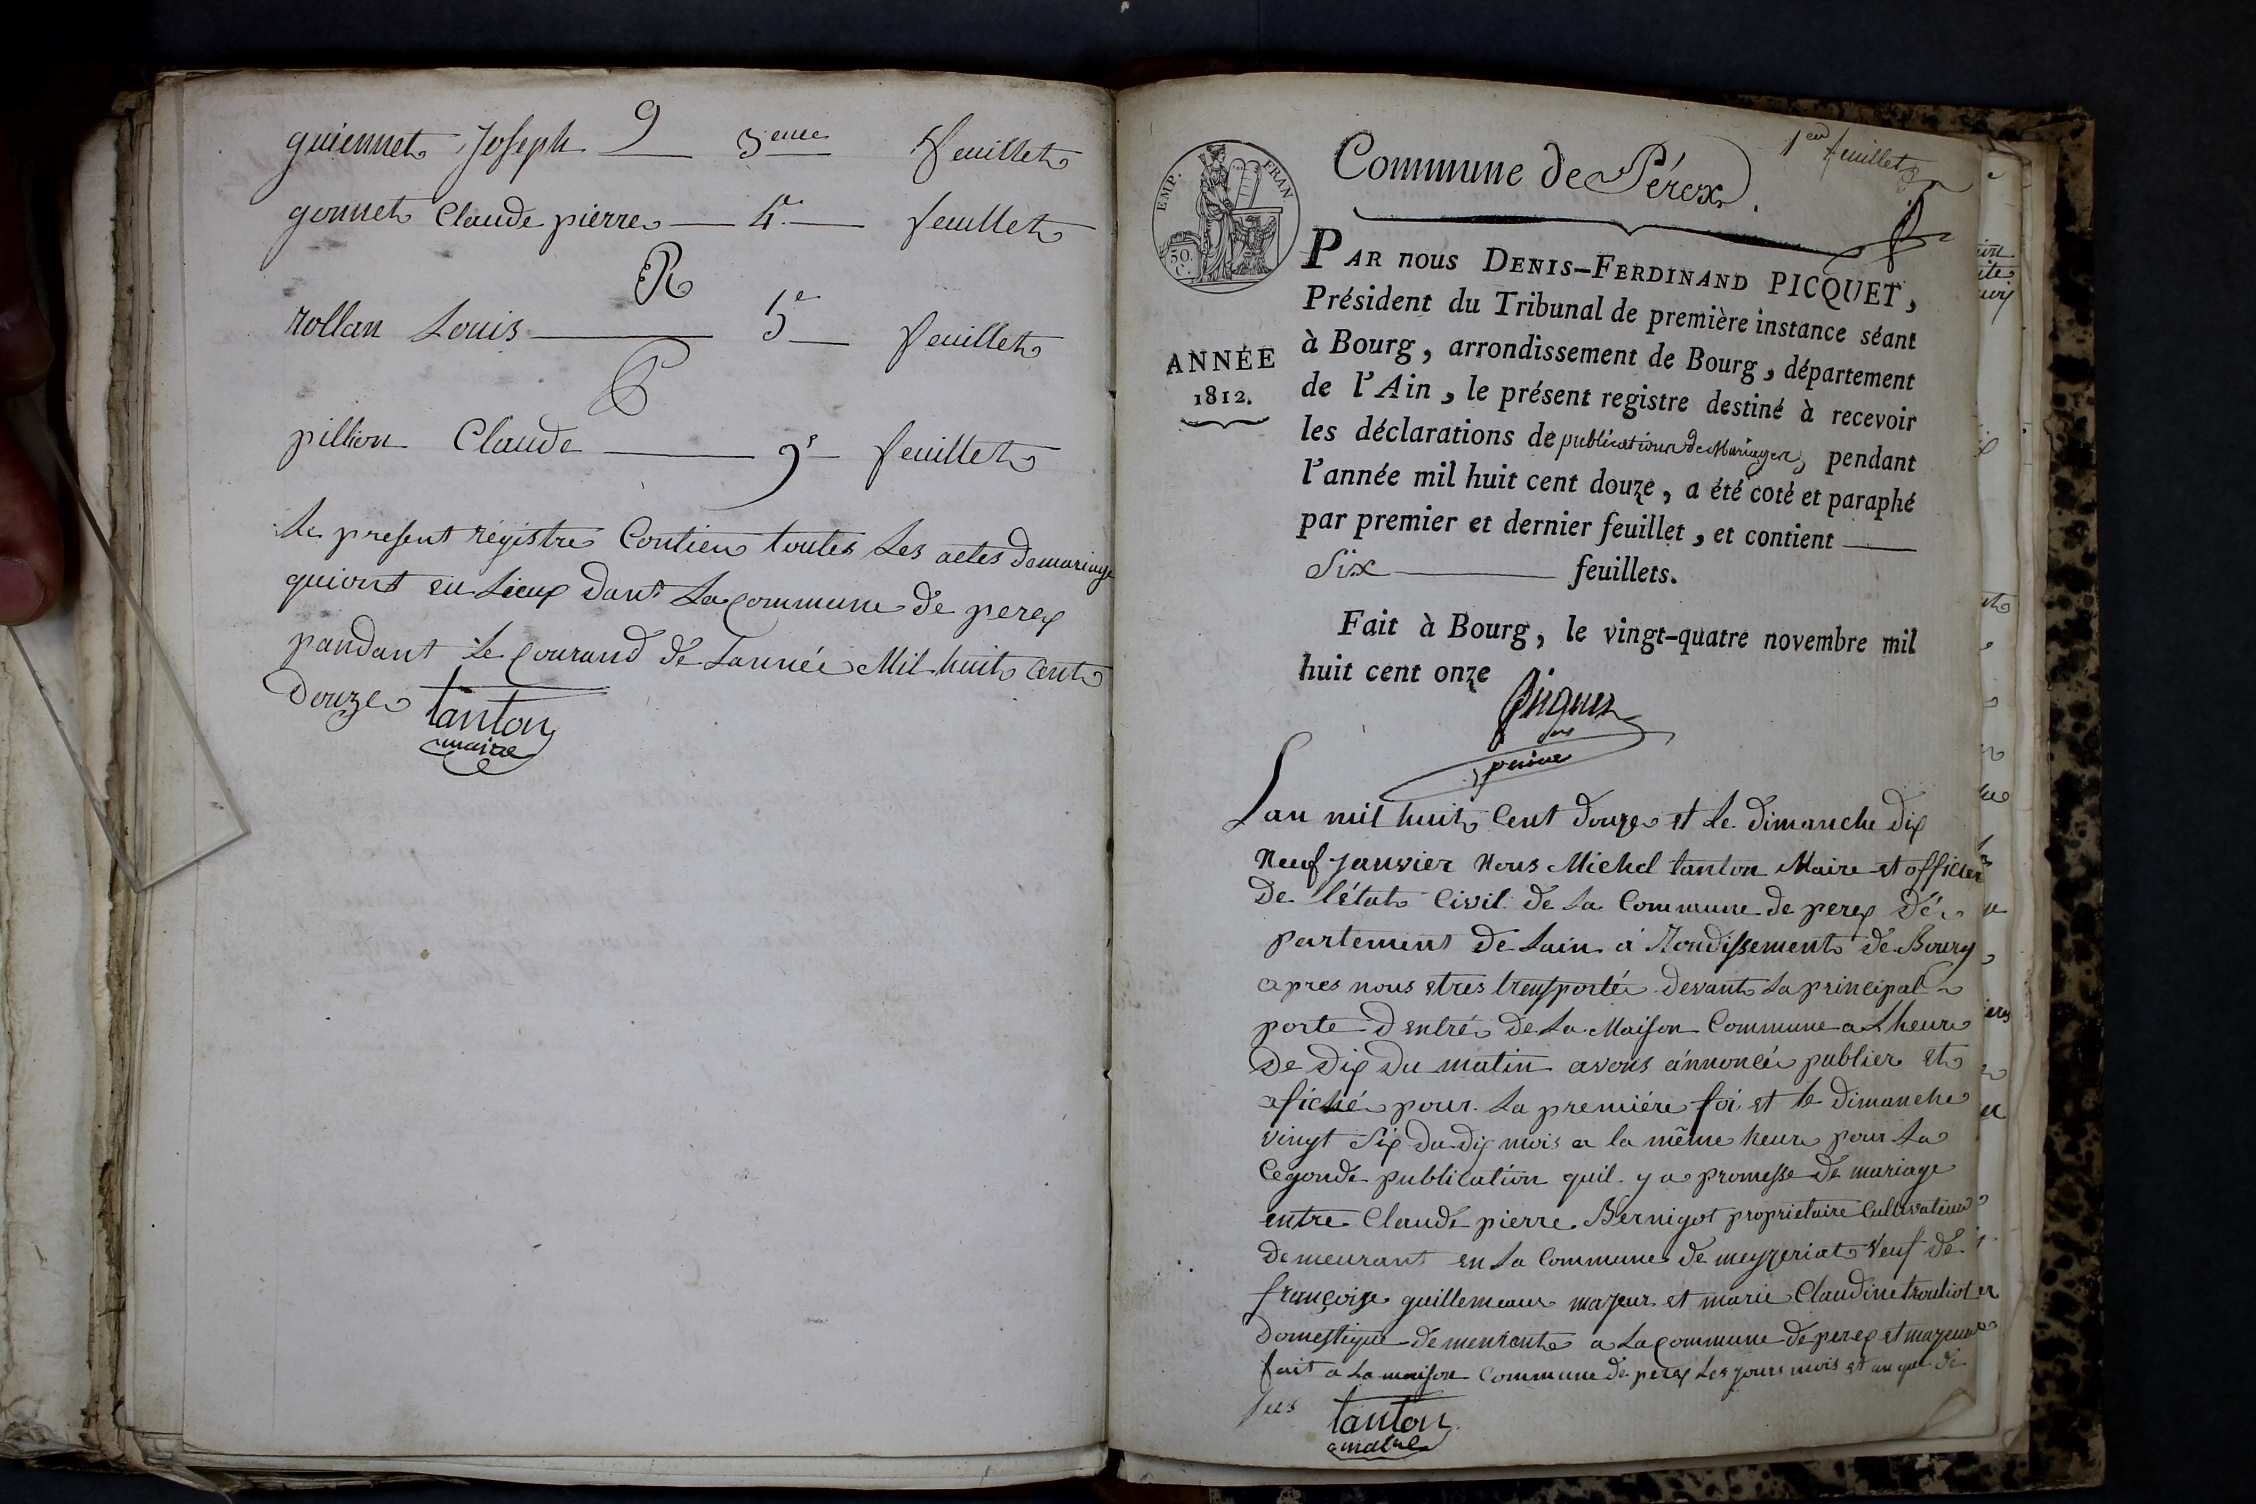 G
guiennet Joseph 3eme feuillet
gonnet Claude pierre 4e feuillet
R
rollan Louis 5e feuillet
P
pillion Claude feuillet
Le present régistre Contien toutes Les actes de mariage
qui ont eu Lieux dans La Commune de perex
pandant Le Courand de Lannée Mil huit Cent
Douze tanton
maire
1er feuillet
Commune de Pérex.
EMP. FRAN
50.
C.
ANNÉE
1812.
PAR nous DENIS-FERDINAND PICQUET,
Président du Tribunal de première instance séant
à Bourg, arrondissement de Bourg, département
de l'Ain, le présent registre destiné à recevoir
les déclarations de publications de Mariages, pendant
l'année mil huit cent douze, a été coté et paraphé
par premier et dernier feuillet, et contient
Six feuillets.
Fait à Bourg, le vingt-quatre novembre mil
huit cent onze
Lan mil huit Cent douze et Le dimanche dix
Neuf janvier Nous Michel tanton Maire et officier
De l'état Civil de La Commune de perex Dé
partement de Lain a Rondissement de Bourg
apres nous etres trensportée devant La principal
porte dentrée de La Maison Commune a Lheure
De Dix Du matin avons annoncée publier et
afiché pour La premiére foi et le dimanche
vingt Six du dix mois a la même heure pour La
Cegonde publication quil y a promesse de mariage
entre Claude pierre Bernigot proprietaire Cultivateur
demeurant en La Commune de meyzeriat Veuf de
françoise guillemeaux majeur et marie Claudine trouliot
Domestique demeurante a La Commune de perex et majeure
fait a La maison Commune de perex Les jours mois et an que de
sus tanton
maire